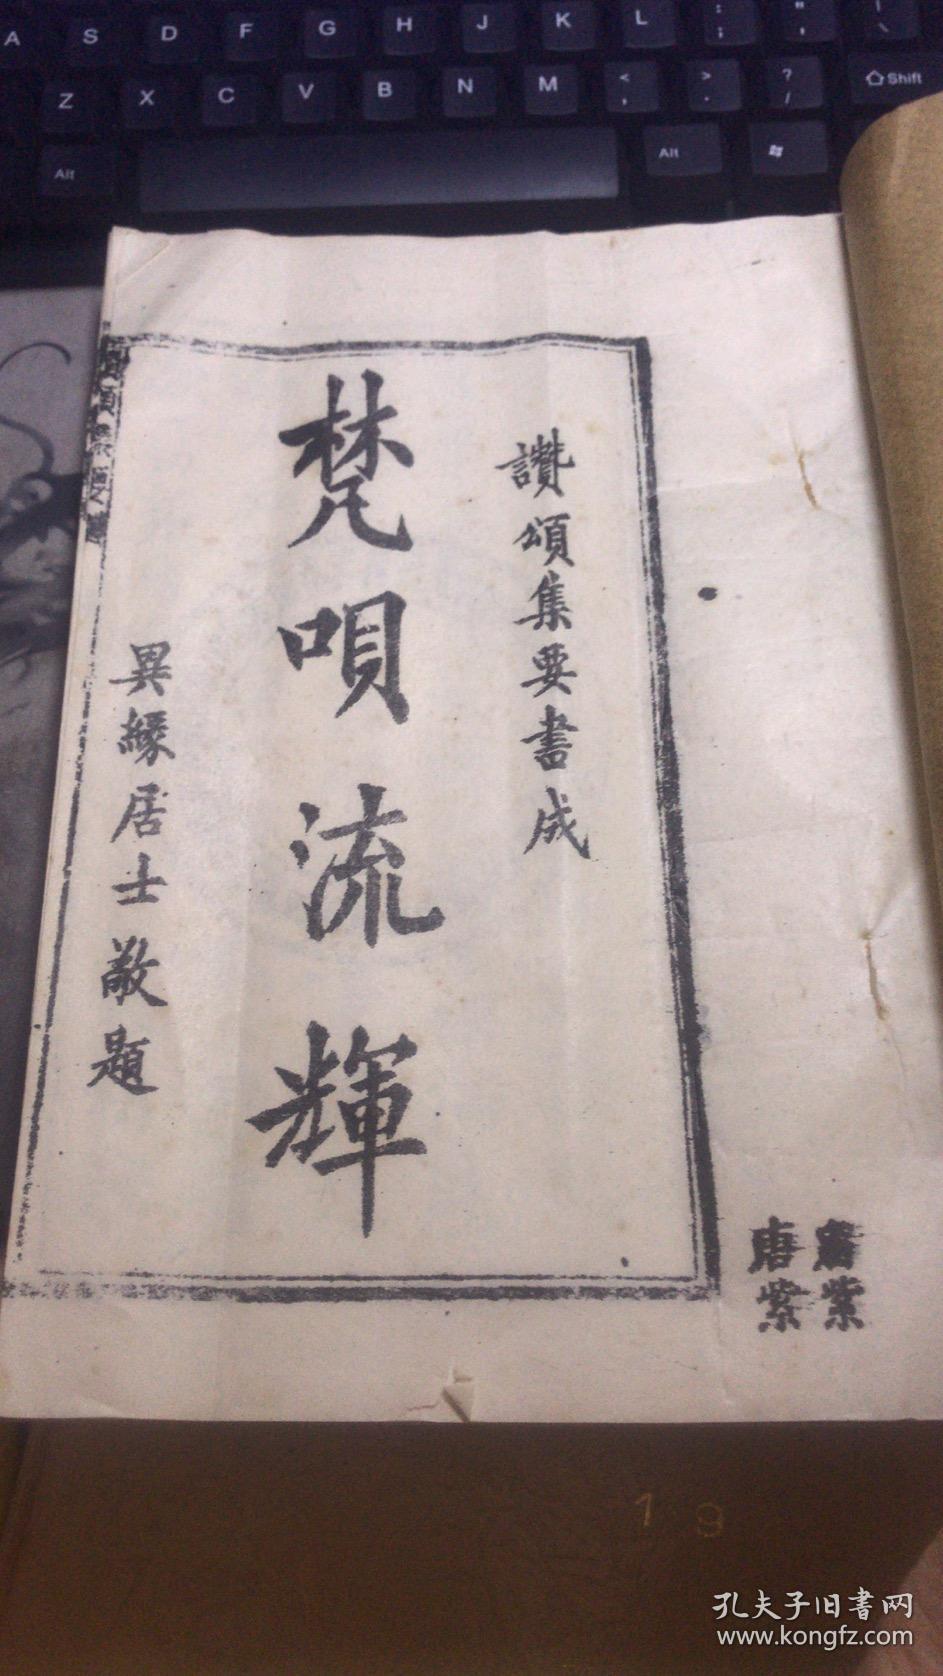 A S D F G H J K L : ; " ' | \
Z X C V B N M < , > . ? / Shift
Alt Alt
讚頌集要書成
梵唄流輝
異緣居士敬題
唐紫
唐紫
19
孔夫子旧書网
www.kongfz.com